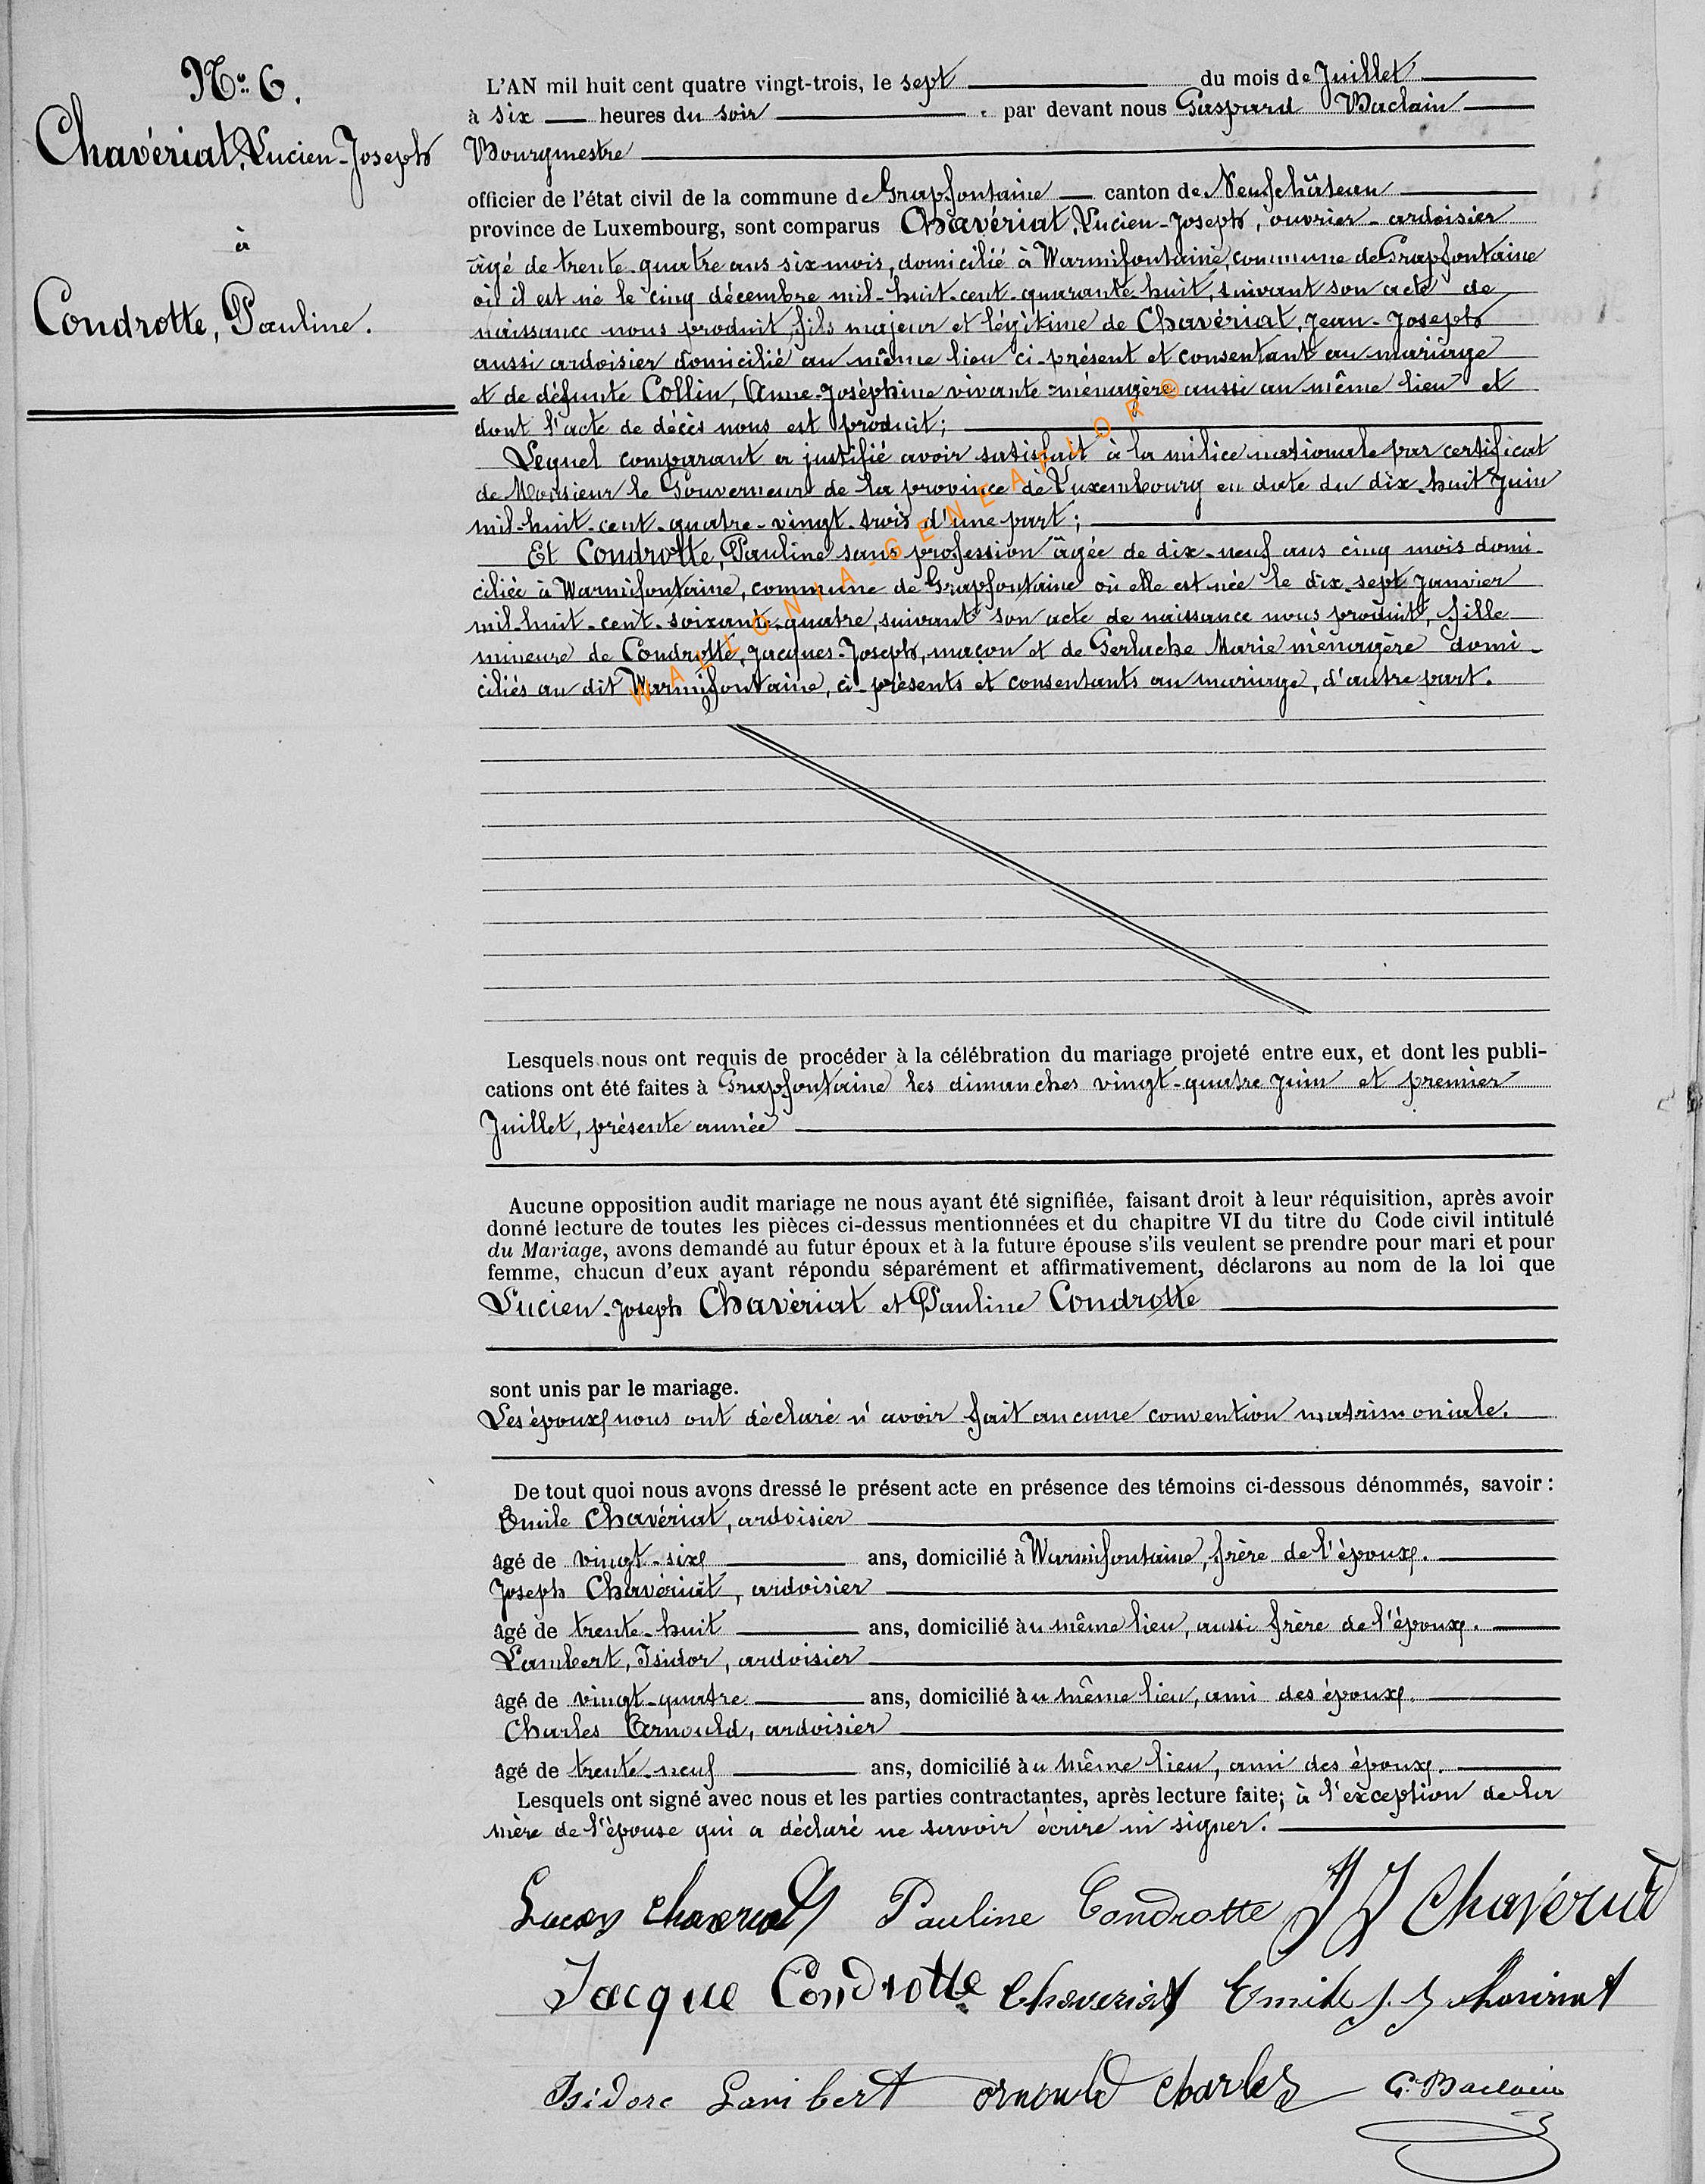 N° 6.
Chavériat, Lucien-Joseph
à
Condrotte, Pauline.
L'AN mil huit cent quatre vingt-trois, le sept du mois de Juillet
à six heures du soir par devant nous Gaspard Baclain
Bourgmestre
officier de l'état civil de la commune de Grapfontaine canton de Neufchâteau
province de Luxembourg, sont comparus Chavériat, Lucien-Joseph, ouvrier-ardoisier
âgé de trente-quatre ans six mois, domicilié à Warmifontaine, commune de Grapfontaine
où il est né le cinq décembre mil-huit-cent-quarante-huit, suivant son acte de
naissance nous produit, fils majeur et légitime de Chavériat, Jean-Joseph
aussi ardoisier domicilié au même lieu ci-présent et consentant au mariage
et de défunte Collin, Anne-Joséphine vivante ménagère aussi au même lieu et
dont l'acte de décès nous est produit;
Lequel comparant a justifié avoir satisfait à la milice nationale par certificat
de Monsieur le Gouverneur de la province de Luxembourg en date du dix-huit Juin
mil-huit-cent-quatre-vingt-trois d'une part;
Et Condrotte, Pauline sans profession âgée de dix-neuf ans cinq mois domi-
ciliée à Warmifontaine, commune de Grapfontaine où elle est née le dix-sept Janvier
mil-huit-cent-soixante-quatre, suivant son acte de naissance nous produit, fille
mineure de Condrotte, Jacques-Joseph, maçon et de Gerlache Marie ménagère domi-
ciliés au dit Warmifontaine, ci-présents et consentants au mariage, d'autre part.
WALLONIA-GENEAFLOR®
Lesquels nous ont requis de procéder à la célébration du mariage projeté entre eux, et dont les publi-
cations ont été faites à Grapfontaine les dimanches vingt-quatre Juin et premier
Juillet, présente année
Aucune opposition audit mariage ne nous ayant été signifiée, faisant droit à leur réquisition, après avoir
donné lecture de toutes les pièces ci-dessus mentionnées et du chapitre VI du titre du Code civil intitulé
du Mariage, avons demandé au futur époux et à la future épouse s'ils veulent se prendre pour mari et pour
femme, chacun d'eux ayant répondu séparément et affirmativement, déclarons au nom de la loi que
Lucien-Joseph Chavériat et Pauline Condrotte
sont unis par le mariage.
Les époux nous ont déclaré n'avoir fait aucune convention matrimoniale.
De tout quoi nous avons dressé le présent acte en présence des témoins ci-dessous dénommés, savoir :
Emile Chavériat, ardoisier
âgé de vingt-six ans, domicilié à Warmifontaine, frère de l'époux.
Joseph Chavériat, ardoisier
âgé de trente-huit ans, domicilié au même lieu, aussi frère de l'époux.
Lambert, Isidor, ardoisier
âgé de vingt-quatre ans, domicilié au même lieu, ami des époux.
Charles Arnould, ardoisier
âgé de trente-neuf ans, domicilié au même lieu, ami des époux.
Lesquels ont signé avec nous et les parties contractantes, après lecture faite; à l'exception de la
mère de l'épouse qui a déclaré ne savoir écrire ni signer.
Pauline Condrotte J J Chavériat
Jacque Condrotte Chaveriat Emile J. J
Isidore Lambert Arnould Charles G. Baclain